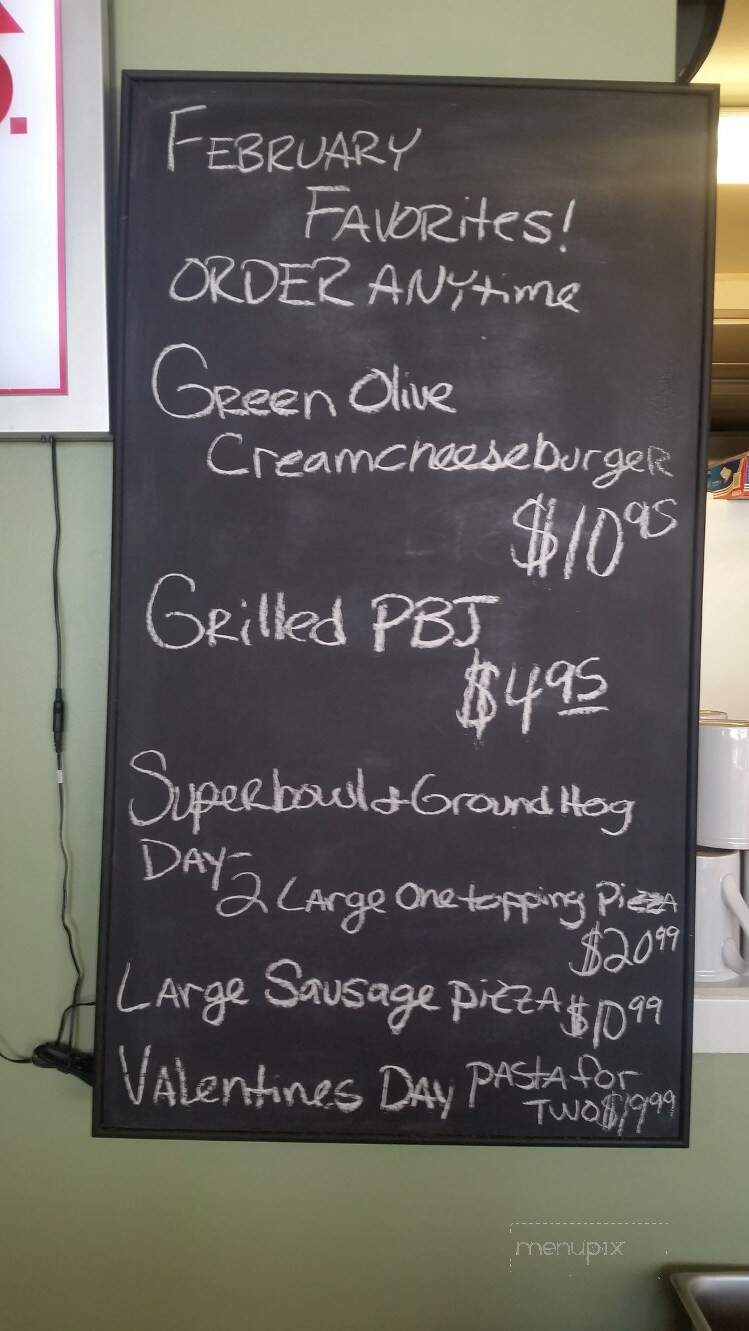 FEBRUARY
FAVORites!
ORDER ANYtime
GREEN Olive
CreamcheeseburgeR
$10 95
GRilled PBJ
$4 95
Superbowl + Ground Hog
DAY-
2 LArge One topping PizzA
$20 99
LArge Sausage pizzA $10 99
VAlentines DAY pASTA for
TWO $19 99
menupix